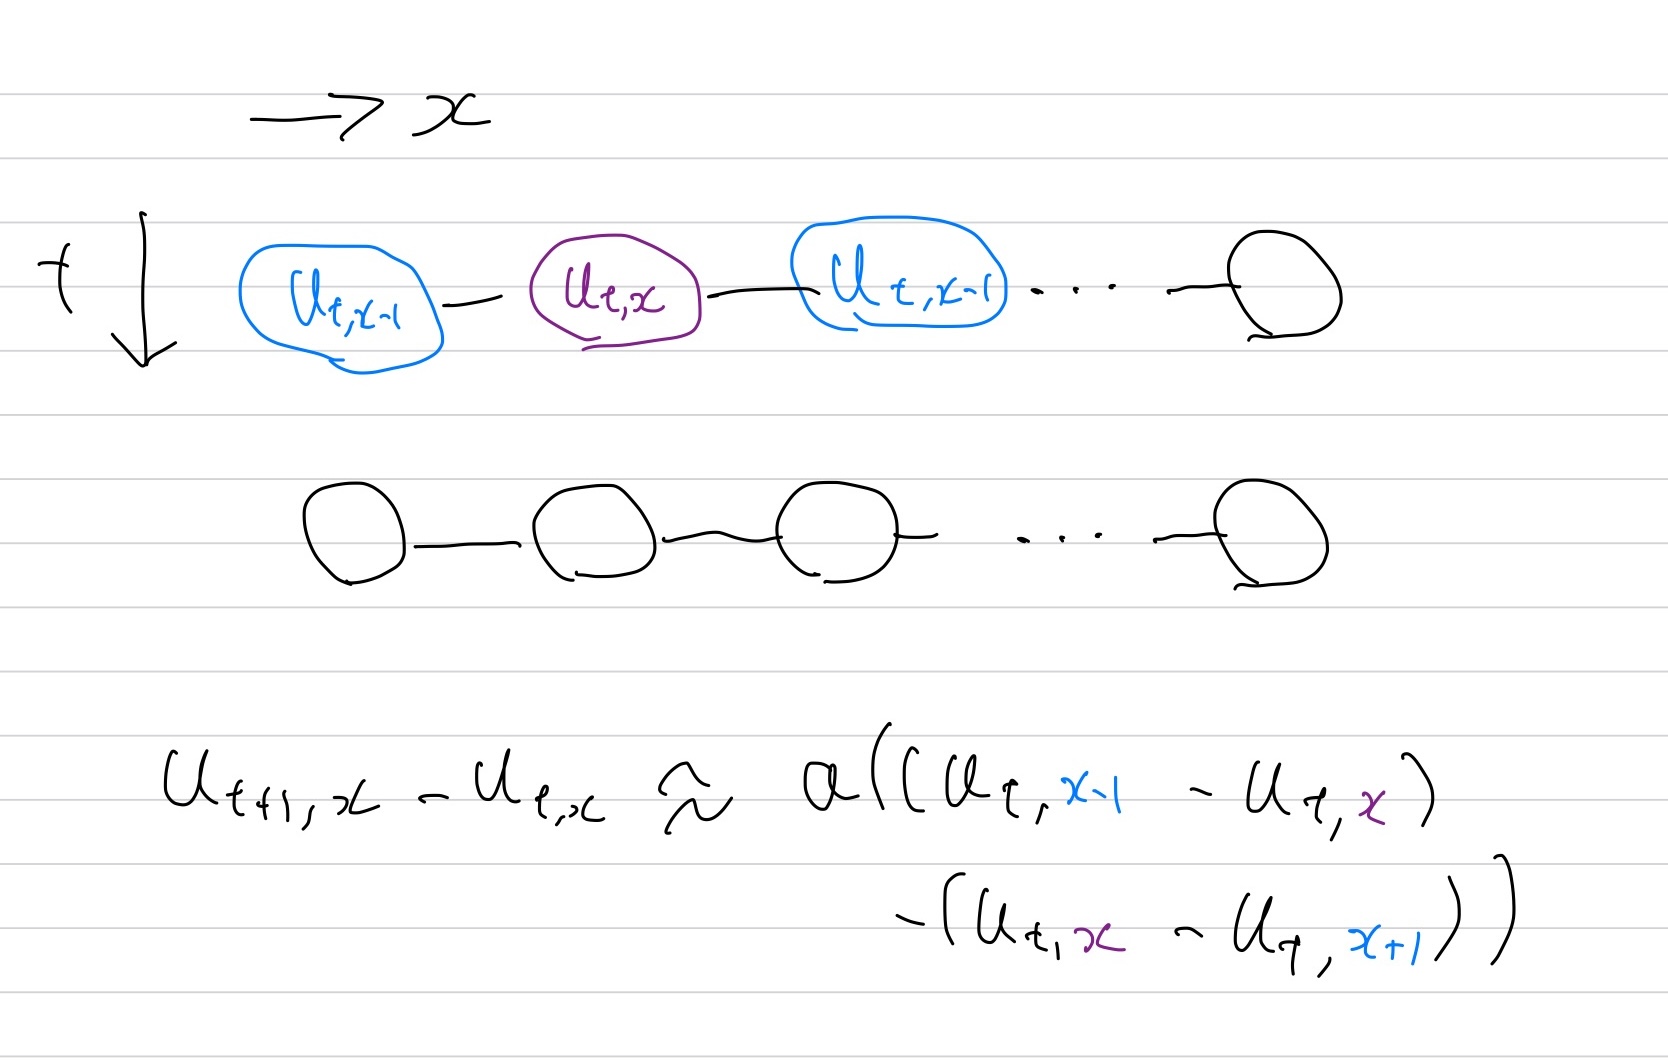 → x
t ↓ u_{t,x-1} — u_{t,x} — u_{t,x-1} ... —
u_{t+1,x} - u_{t,x} ≈ a((u_{t,x-1} - u_{t,x})
-(u_{t,x} - u_{t,x+1}))